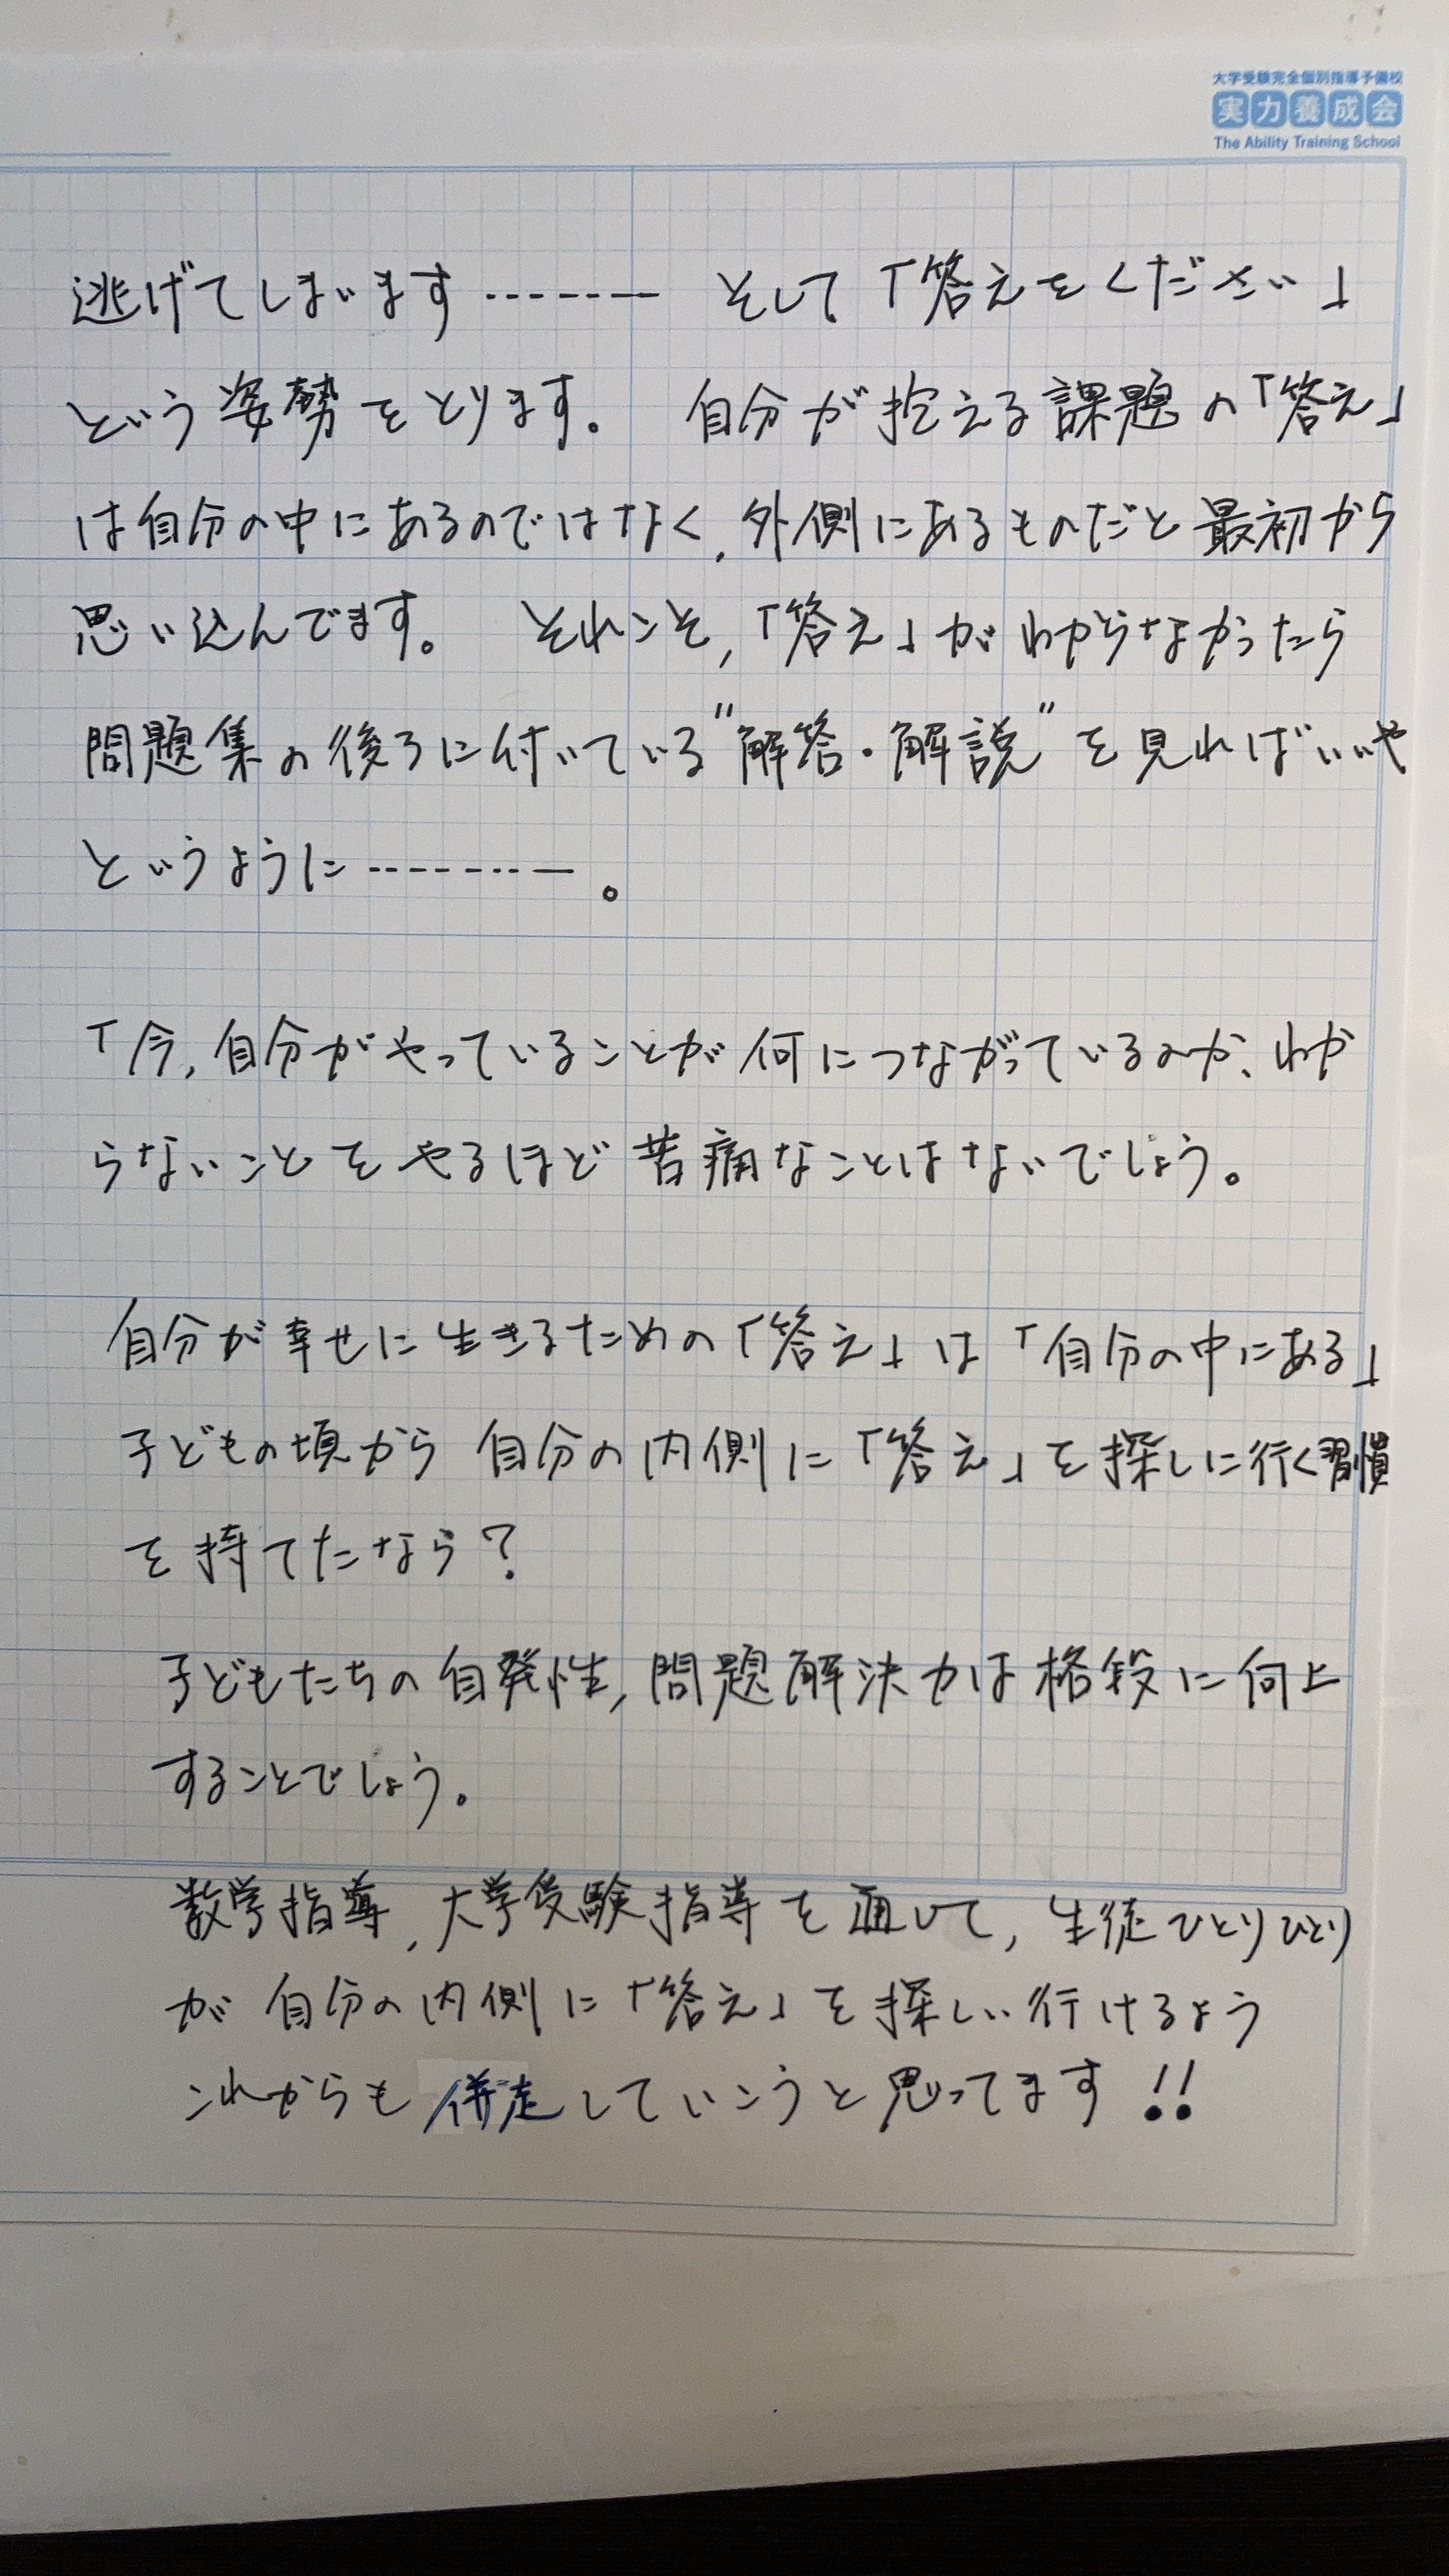 大学受験完全個別指導予備校
実力養成会
The Ability Training School
逃げてしまいます ------- そして「答えをください」
という姿勢をとります。 自分が抱える課題の「答え」
は自分の中にあるのではなく, 外側にあるものだと最初から
思い込んでます。 それこそ, 「答え」がわからなかったら
問題集の後ろに付いている"解答・解説"を見ればいいや
というように ---------。
「今, 自分がやっていることが何につながっているのか、わか
らないことをやるほど苦痛なことはないでしょう。
自分が幸せに生きるための「答え」は「自分の中にある」
子どもの頃から 自分の内側に「答え」を探しに行く習慣
を持てたなら?
子どもたちの自発性, 問題解決力は格段に向上
することでしょう。
数学指導, 大学受験指導を通して, 生徒ひとりひとり
が自分の内側に「答え」を探しに行けるよう
これからも併走していこうと思ってます!!